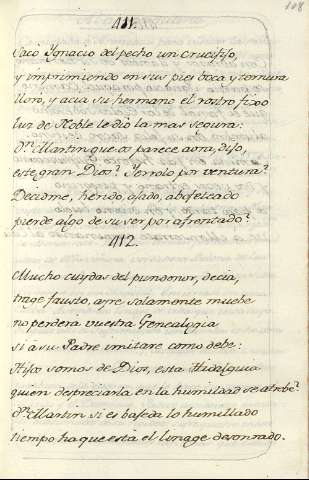 108
411.
Sacó Ygnacio del pecho un crucifixo,
y imprimiendo en sus pies boca y ternura
lloro, y acia su hermano el rostro fixo
luz de Noble le dió la mas segura:
Dn. Martin que os parece aora, dixo,
este gran Dios? Perrolo por ventura?
Decidme, herido, atado, abofeteado
pierde algo de su ser por afrentado?
412.
Mucho cuydas del pundonor, decia,
trage fausto, ayre solamente muebe
no perderá vuestra Genealogia
si á su Padre imitare como debe:
Hijos somos de Dios, esta Hidalguia
quien despreciarla en la humildad se atrebe?
Dn. Martin si es bageda lo humillado
tiempo ha que está el linage desonrado.